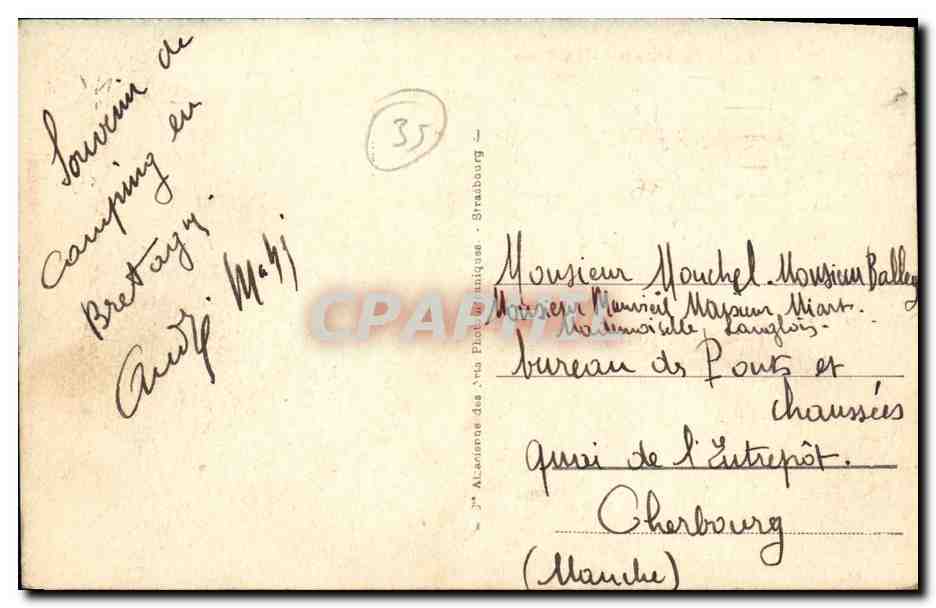 Souvenir de
camping en
Bretagne.
André
35
CPARAMA
Cie Alsacienne des Arts Photomécaniques - Strasbourg
Monsieur Mouchel. Monsieur Balley
Monsieur Monsieur Miart.
Mademoiselle, Langlois.
bureau des Ponts et
chaussées
Quai de l'Entrepôt.
Cherbourg
(Manche)